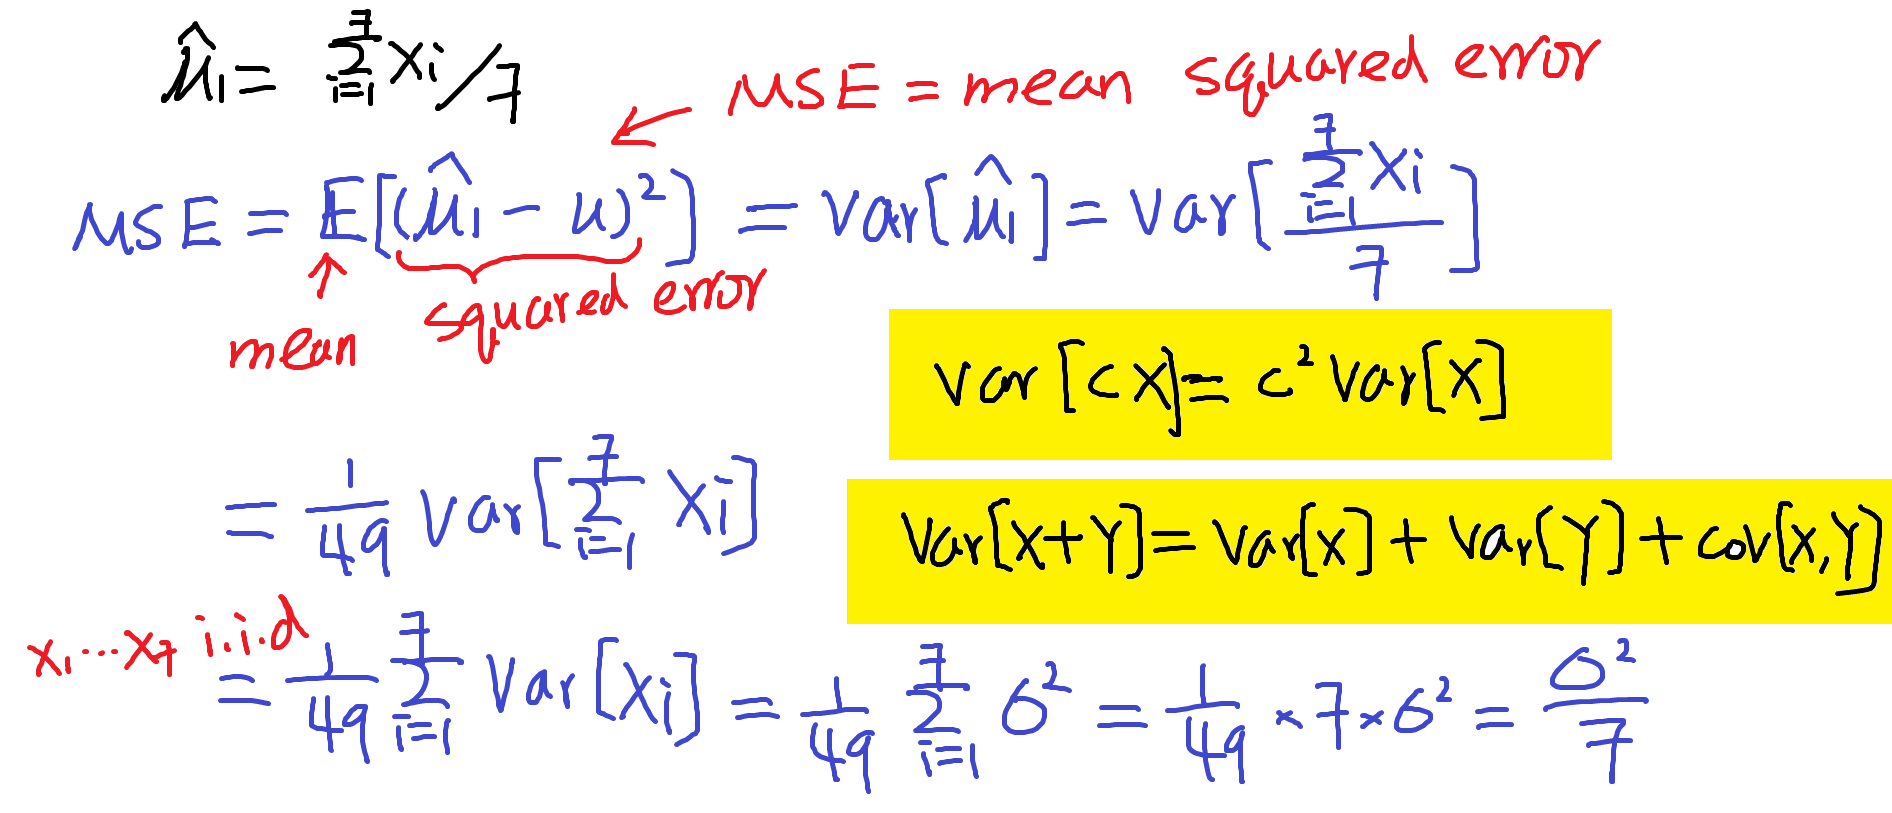 μ̂₁ = Σ_{i=1}^{7} Xi / 7
MSE = mean squared error
MSE = E[(μ̂₁ - u)²] = Var[μ̂₁] = Var[Σ_{i=1}^{7} Xi / 7]
mean squared error
Var[cX] = c² Var[X]
= 1/49 Var[Σ_{i=1}^{7} Xi]
Var[X+Y] = Var[X] + Var[Y] + Cov[X,Y]
X₁ ... X₇ i.i.d
= 1/49 Σ_{i=1}^{7} Var[Xi] = 1/49 Σ_{i=1}^{7} σ² = 1/49 × 7 × σ² = σ²/7